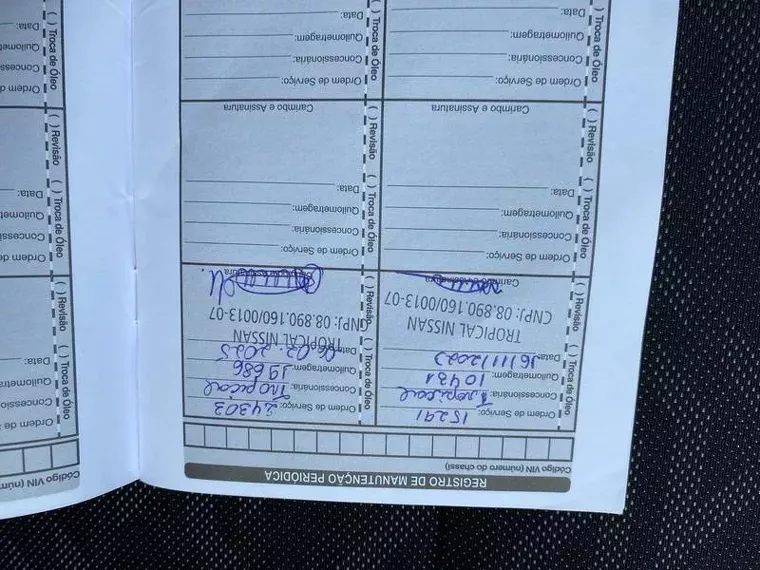 REGISTRO DE MANUTENÇÃO PERIÓDICA
Código VIN (número do chassi)
( ) Troca de Óleo
( ) Revisão
Ordem de Serviço: 15291
Concessionária: Tropical
Quilometragem: 10431
Data: 16/11/2023
TROPICAL NISSAN
CNPJ: 08.890.160/0013-07
Carimbo e Assinatura
( ) Troca de Óleo
( ) Revisão
Ordem de Serviço: 24303
Concessionária: Tropical
Quilometragem: 19686
Data: 06.02.2025
TROPICAL NISSAN
CNPJ: 08.890.160/0013-07
( ) Troca de Óleo
( ) Revisão
Ordem de Serviço:
Concessionária:
Quilometragem:
Data:
Carimbo e Assinatura
( ) Troca de Óleo
( ) Revisão
Ordem de Serviço:
Concessionária:
Quilometragem:
Data:
Carimbo e Assinatura
( ) Troca de Óleo
Ordem de Serviço:
Concessionária:
Quilometragem:
Data:
( ) Troca de Óleo
Ordem de Serviço:
Concessionária:
Quilometragem:
Data:
Código VIN (núm
( ) Troca de Óleo
( ) Revisão
Ordem de S
Concessio
Quilomet
Data:
( ) Troca de Óleo
( ) Revisão
Ordem de
Concession
Quilomet
Data:
( ) Troca de Óleo
Ordem d
Concess
Quilomet
Data: